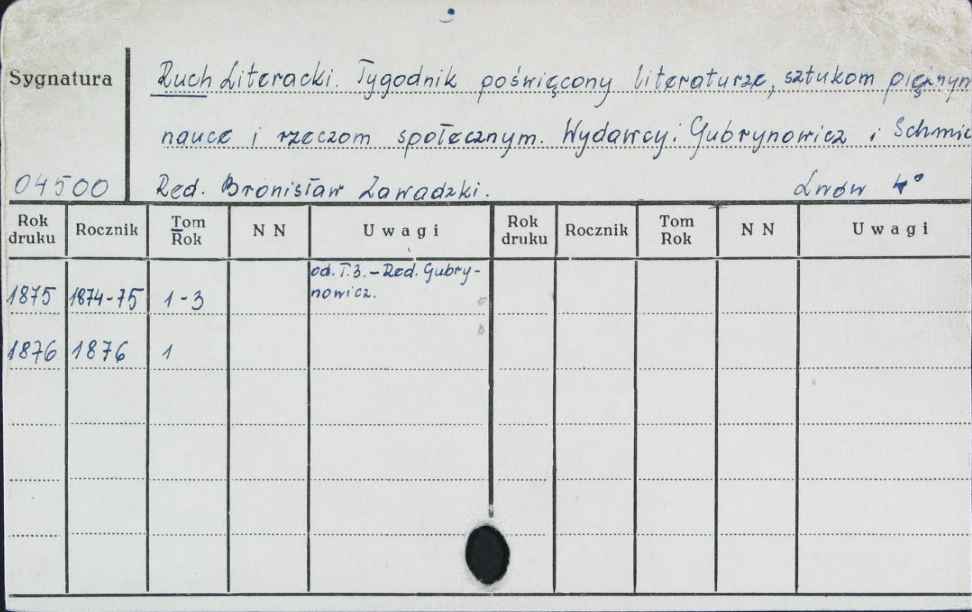 Sygnatura
Ruch Literacki. Tygodnik poświęcony literaturze, sztukom pięknym
nauce i rzeczom społecznym. Wydawcy: Gubrynowicz i Schmid
04500
Red. Bronisław Zawadzki. Lwów 4°
Rok druku Rocznik Tom Rok N N Uwagi Rok druku Rocznik Tom Rok N N Uwagi
od. T.3. - Red. Gubry-
1875 1874-75 1-3 nowicz.
1876 1876 1